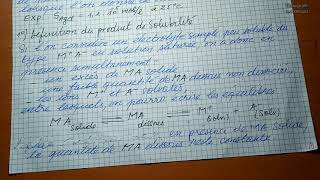 Exp S AgCl = 10 mol/l à 25°C
1°) Définition du produit de solubilité
Si l'on considère un électrolyte simple peu soluble du
type M⁺A⁻ en solution saturée, on a donc en
présence simultanément :
- un excès de MA solide
- une faible quantité de MA dissous non dissocié,
- les ions M⁺ et A⁻ solvatés,
entre lesquels, on pourra écrire les équilibres
MA solide ⇌ MA dissous ⇌ M⁺ (Solv) + A⁻ (Solv)
en présence de MA solide,
la quantité de MA dissous reste constante